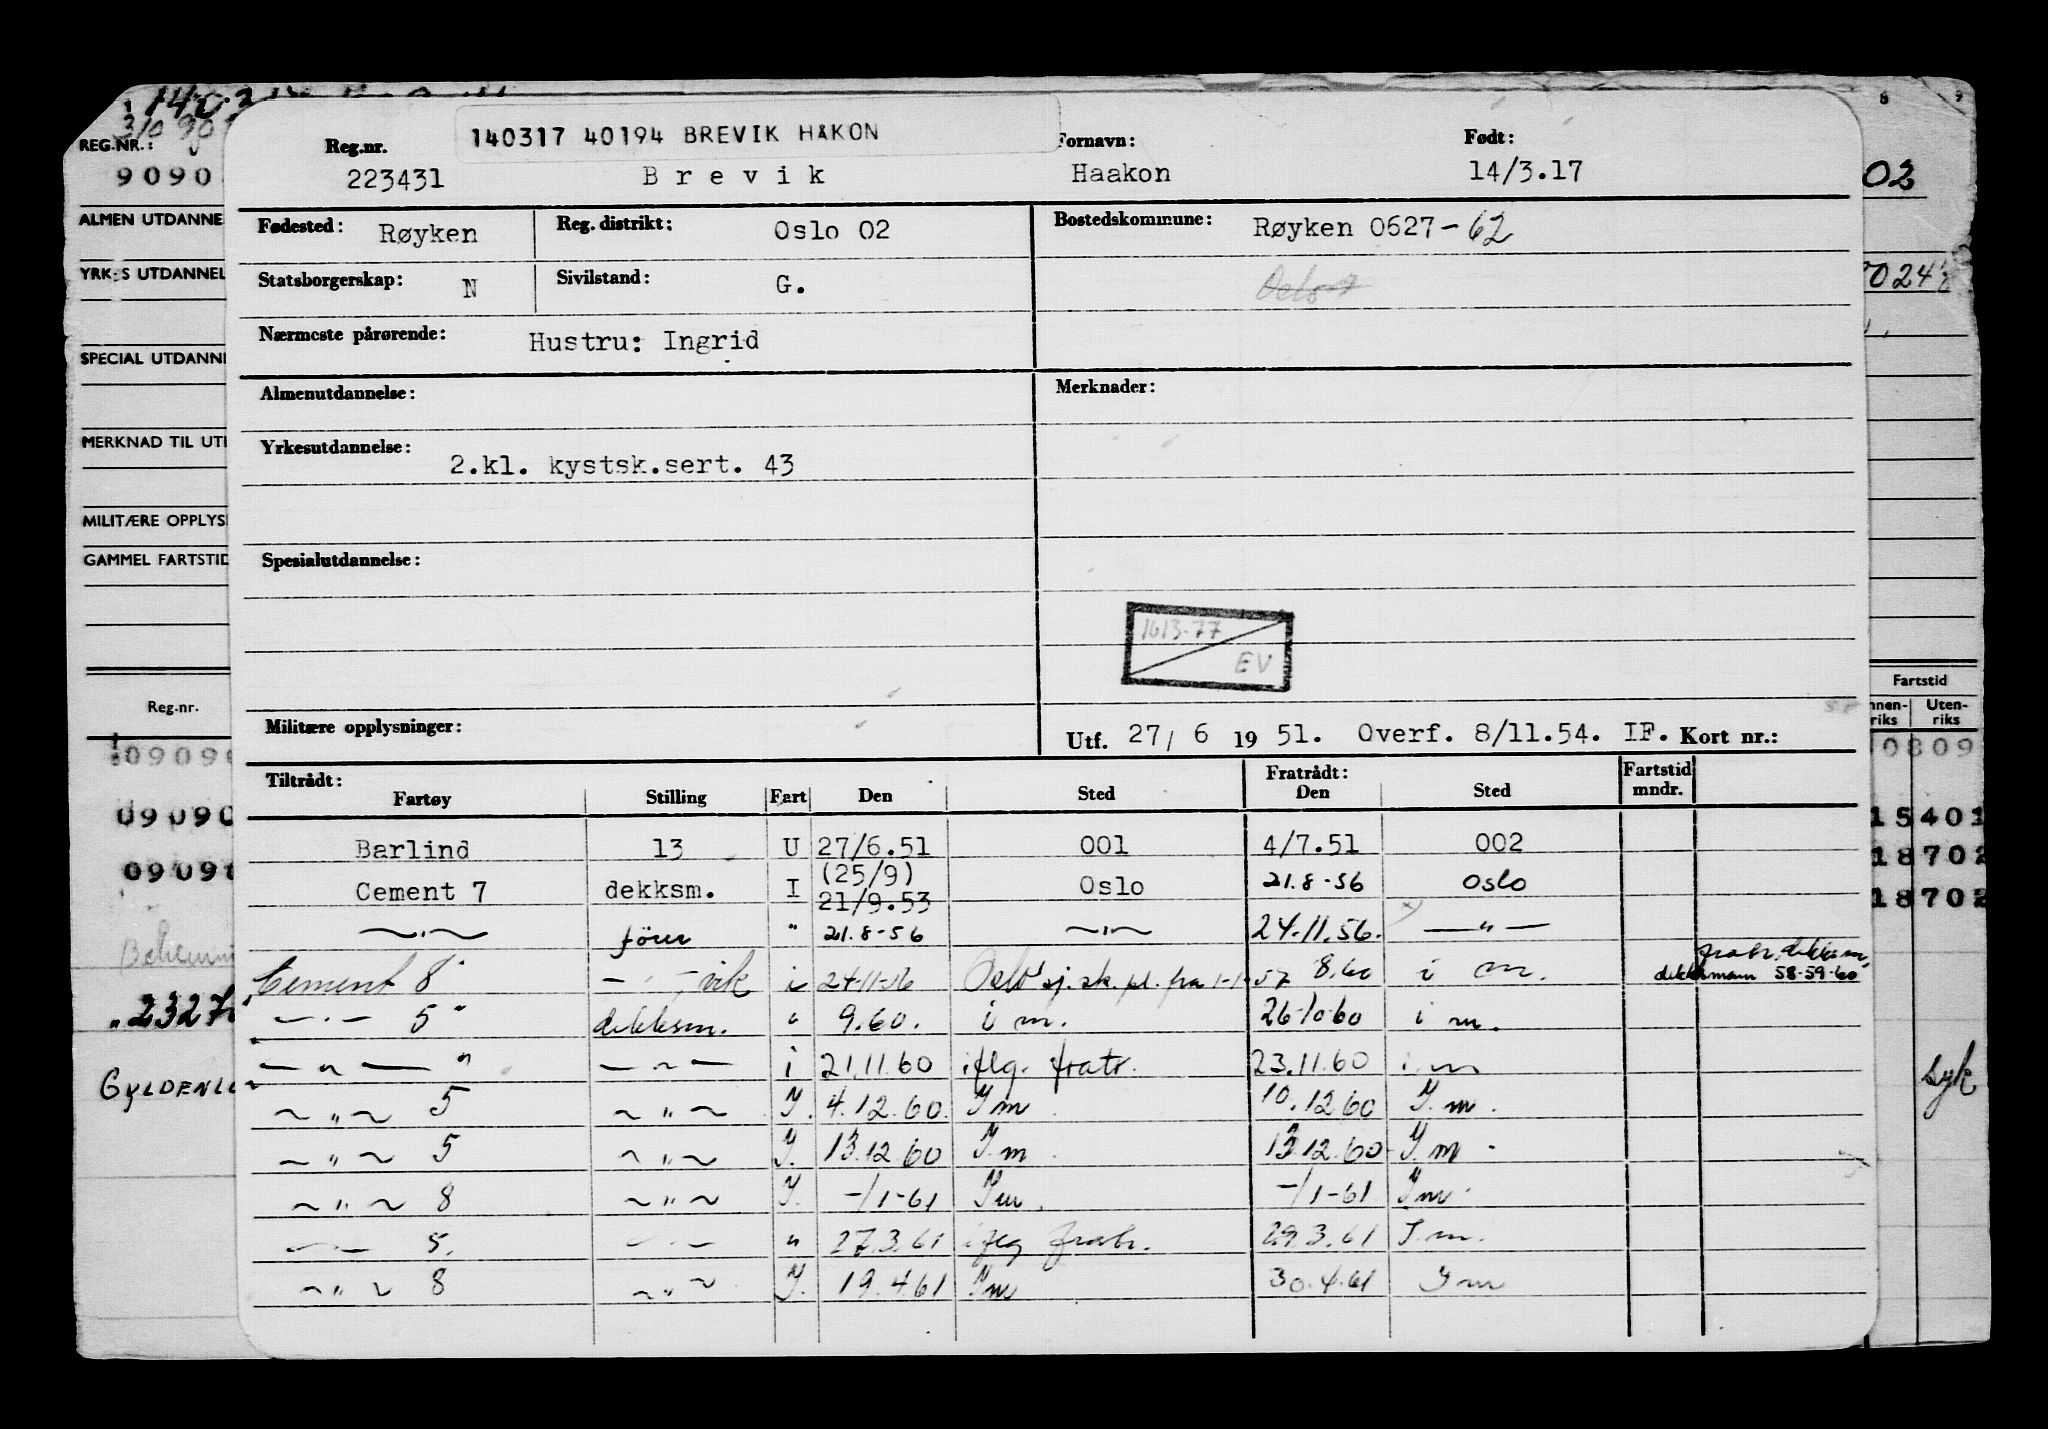 REG.NR.:
9090
ALMEN UTDANNE
YRKES UTDANNEL
SPECIAL UTDANN
MERKNAD TIL UT
MILITÆRE OPPLYS
GAMMEL FARTSTID
Reg.nr.
09090
09090
"2327
GYLDENL
140317 40194 BREVIK HÅKON
Reg.nr. Fornavn: Født:
223431 Brevik Haakon 14/3.17
Fødested: Røyken Reg. distrikt: Oslo 02 Bostedskommune: Røyken 0627-62
Statsborgerskap: N Sivilstand: G. Oslo
Nærmeste pårørende: Hustru: Ingrid
Almenutdannelse: Merknader:
Yrkesutdannelse: 2.kl. kystsk.sert. 43
Spesialutdannelse:
1613-77
EV
Militære opplysninger: Utf. 27/ 6 19 51. Overf. 8/11.54. IF. Kort nr.:
Tiltrådt: Fratrådt: Fartstid
Fartøy Stilling Fart Den Sted Den Sted mndr.
Barlind 13 U 27/6.51 001 4/7.51 002
Cement 7 dekksm. I (25/9) 21/9.53 Oslo 21.8-56 Oslo
—"— fører " 21.8-56 —"— 24.11.56. —"—
fratr. dekksm.
Cement 8 —"— vik i 24-11-56 Oslo sj.sk.pl. fra 1-1-57 8.60 i m. dekksmann 58-59-60
—"— 5 " dekksm. " 9.60. i m. 26-10-60 i m.
—"— " —"— i 21.11.60 iflg. fratr. 23.11.60 i m
—"— 5 —"— I. 4.12.60. I m. 10.12 60 I. m.
—"— 5 —"— I. 13.12.60 I. m. 13.12.60 I. m.
—"— 8 —"— I. -/1-61 I m. -/1-61 I m.
—"— 5. —"— " 27.3.61 iflg fratr. 29.3.61 I. m.
—"— 8 —"— I. 19.4.61 I m 30.4.61 I m
8 9
02
024
Fartstid
Innen-riks Uten-riks
0809
15401
18702
18702
syk